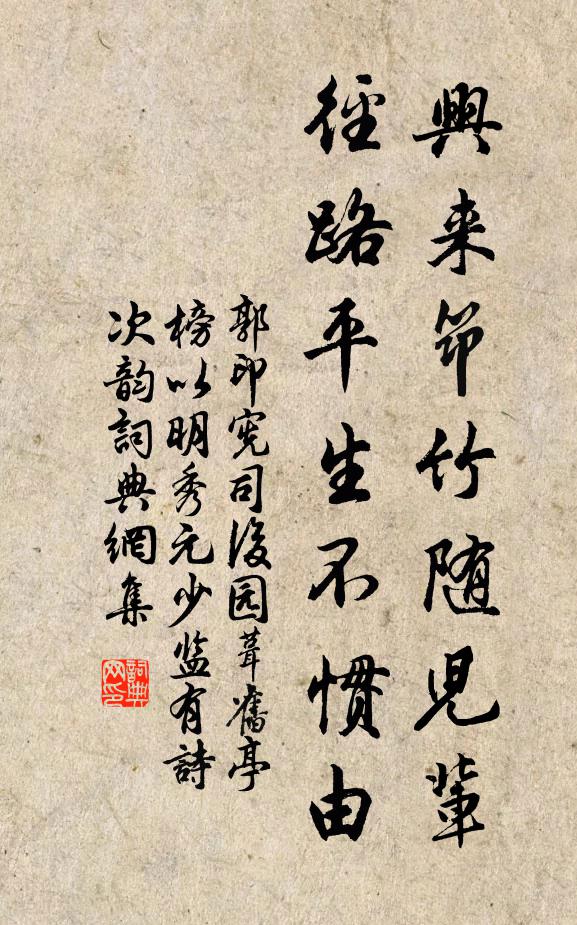 興来筇竹随児輩
徑路平生不慣由
郭印宪司後园葺舊亭
榜以明秀元少监有詩
次韵詞典網集
詞典网印